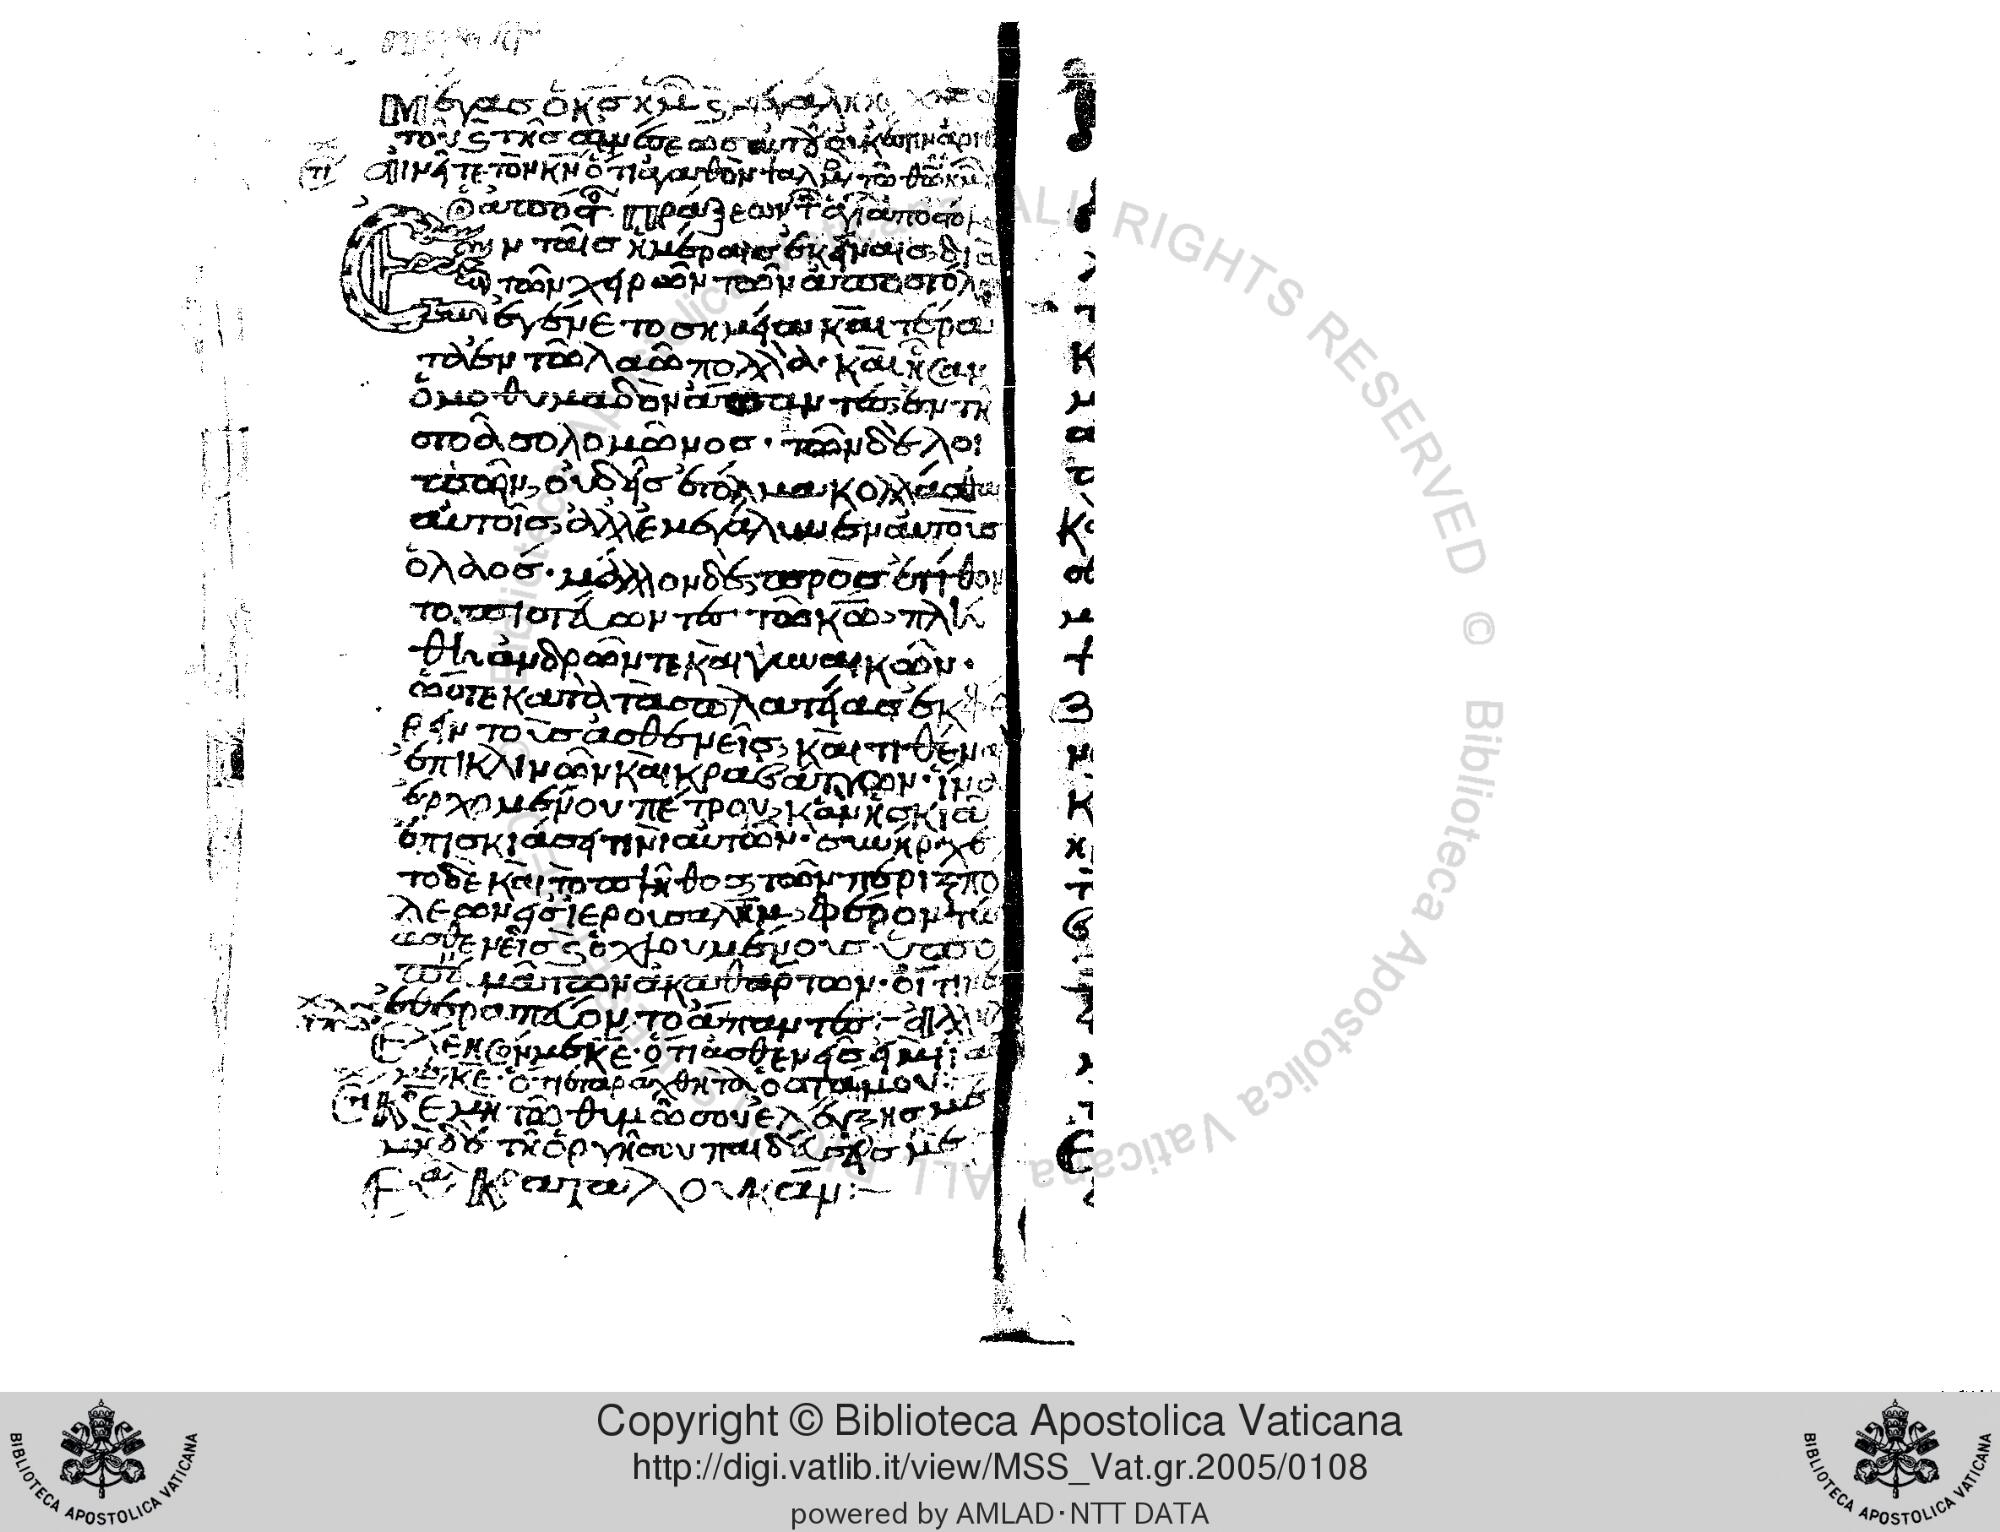 Μέγας ὁ κ̅ς ἡμῶν
τοῦ τῆς
αἰνεῖτε τὸν κ̅ν ὅτι ἀγαθὸν ψαλμὸς τῶ θῶ ἡμῶν
Πράξεων τῶν ἁγίων ἀποστόλων
Ἐν ταῖς ἡμέραις ἐκείναις, διὰ
τῶν χειρῶν τῶν ἀποστόλων
ἐγένετο σημεῖα καὶ τέρα
τα ἐν τῶ λαῶ πολλά· καὶ ἦσαν
ὁμοθυμαδὸν ἅπαντες ἐν τῆ
στοᾶ σολομῶνος· τῶν δὲ λοι
πῶν, οὐδεὶς ἐτόλμα κολλᾶσθαι
αὐτοῖς, ἀλλ' ἐμεγάλυνεν αὐτοὺς
ὁ λαός· μᾶλλον δὲ προσετίθεν
το πιστεύοντες τῶ κ̅ω, πλή
θη ἀνδρῶν τε καὶ γυναικῶν·
ὥστε κατὰ τὰς πλατείας ἐκφέ
ρειν τοὺς ἀσθενεῖς, καὶ τιθέναι
ἐπὶ κλινῶν καὶ κραβάττων· ἵνα
ἐρχομένου πέτρου, κἂν ἡ σκιὰ
ἐπισκιάση τινὶ αὐτῶν· συνήρχε
το δὲ καὶ τὸ πλῆθος τῶν πέριξ πό
λεων εἰς ἱερουσαλὴμ, φέροντες
ἀσθενεῖς καὶ ὀχλουμένους ὑπὸ
πνευμάτων ἀκαθάρτων· οἵτινες
ἐθεραπεύοντο ἅπαντες:— ἀλληλούϊα
Ἐλέησόν με κ̅ε· ὅτι ἀσθενής εἰμι ἴασαί
με κ̅ε· ὅτι ἐταράχθη τὰ ὀστᾶ μου:
Κ̅ε μὴ τῶ θυμῶ σου ἐλέγξης με
μηδὲ τῆ ὀργῆ σου παιδεύσης με
Copyright © Biblioteca Apostolica Vaticana
http://digi.vatlib.it/view/MSS_Vat.gr.2005/0108
powered by AMLAD·NTT DATA
BIBLIOTECA APOSTOLICA VATICANA
BIBLIOTECA APOSTOLICA VATICANA
© Biblioteca Apostolica Vaticana ALL RIGHTS RESERVED © Biblioteca Apostolica Vaticana ALL RIGHTS RESERVED